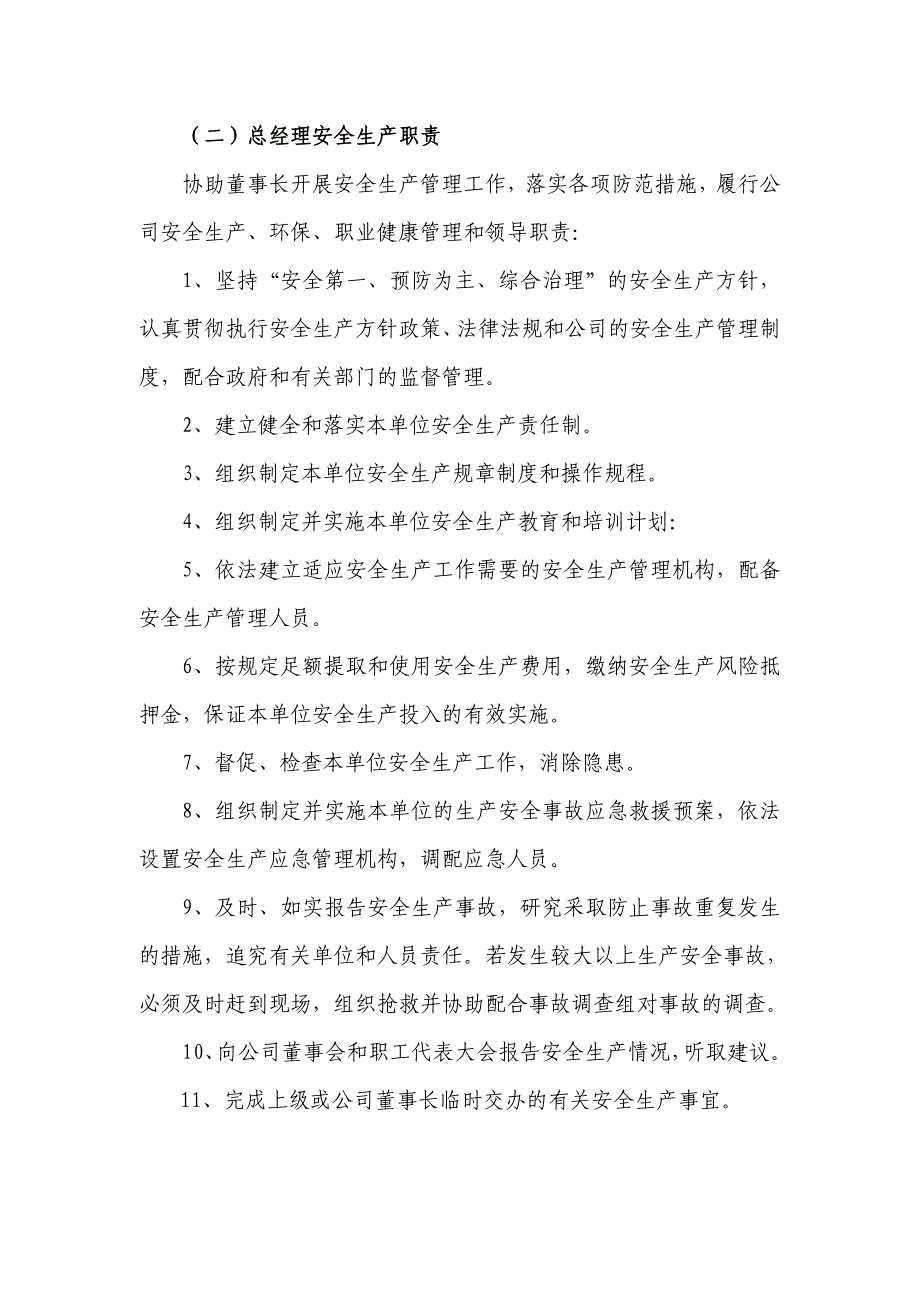 （二）总经理安全生产职责
协助董事长开展安全生产管理工作，落实各项防范措施，履行公
司安全生产、环保、职业健康管理和领导职责：
1、坚持“安全第一、预防为主、综合治理”的安全生产方针，
认真贯彻执行安全生产方针政策、法律法规和公司的安全生产管理制
度，配合政府和有关部门的监督管理。
2、建立健全和落实本单位安全生产责任制。
3、组织制定本单位安全生产规章制度和操作规程。
4、组织制定并实施本单位安全生产教育和培训计划：
5、依法建立适应安全生产工作需要的安全生产管理机构，配备
安全生产管理人员。
6、按规定足额提取和使用安全生产费用，缴纳安全生产风险抵
押金，保证本单位安全生产投入的有效实施。
7、督促、检查本单位安全生产工作，消除隐患。
8、组织制定并实施本单位的生产安全事故应急救援预案，依法
设置安全生产应急管理机构，调配应急人员。
9、及时、如实报告安全生产事故，研究采取防止事故重复发生
的措施，追究有关单位和人员责任。若发生较大以上生产安全事故，
必须及时赶到现场，组织抢救并协助配合事故调查组对事故的调查。
10、向公司董事会和职工代表大会报告安全生产情况，听取建议。
11、完成上级或公司董事长临时交办的有关安全生产事宜。